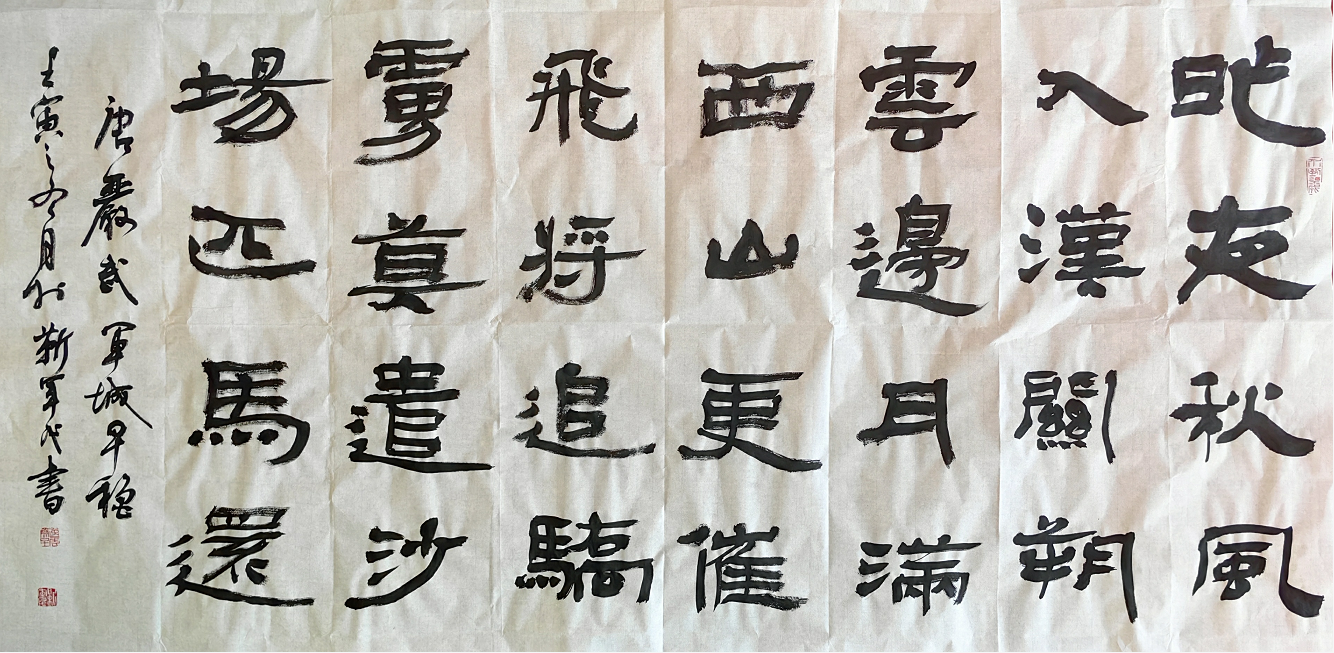 昨夜秋風
入漢關朔
雲邊月滿
西山更催
飛將追驕
虜莫遣沙
場匹馬還
唐嚴武軍城早穐
壬寅之月於靳軍書